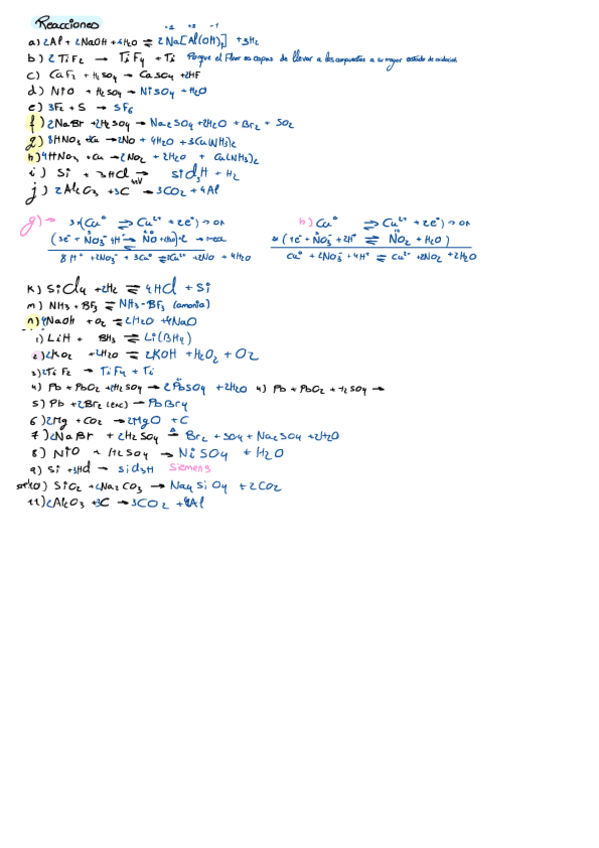 Reacciones
+1 +3 -1
a) 2Al + 2NaOH + 6H2O ⇌ 2Na[Al(OH)4] + 3H2
b) 2TiF2 → TiF4 + Ti Porque el Fluor es capaz de llevar a los compuestos a su mayor estado de oxidación
c) CaF2 + H2SO4 → CaSO4 + 2HF
d) NiO + H2SO4 → NiSO4 + H2O
e) 3F2 + S → SF6
f) 2NaBr + 2H2SO4 → Na2SO4 + 2H2O + Br2 + SO2
g) 8HNO3 + Cu → 2NO + 4H2O + 3Cu(NH3)2
h) 4HNO3 + Cu → 2NO2 + 2H2O + Cu(NH3)2
i) Si + 3HCl → SiCl3H + H2
j) 2Al2O3 + 3C → 3CO2 + 4Al
g) → 3x(Cu° ⇌ Cu2+ + 2e-) → ox
(3e- + NO3- 4H+ → NO + H2O)·2 → red
8H+ + 2NO3- + 3Cu° ⇌ 3Cu2+ + 2NO + 4H2O
h) Cu° ⇌ Cu2+ + 2e-) → ox
2x(1e- + NO3- + 2H+ ⇌ NO2 + H2O)
Cu° + 2NO3- + 4H+ ⇌ Cu2+ + 2NO2 + 2H2O
K) SiCl4 + 2H2 ⇌ 4HCl + Si
m) NH3 + BF3 ⇌ NH3-BF3 (amonia)
n) 4NaOH + O2 ⇌ 2H2O + 4NaO
1) LiH + BH3 ⇌ Li(BH4)
2) 2KO2 + 2H2O ⇌ 2KOH + H2O2 + O2
3) 2TiF2 → TiF4 + Ti
4) Pb + PbO2 + 2H2SO4 → 2PbSO4 + 2H2O 4) Pb + PbO2 + H2SO4 →
5) Pb + 2Br2 (exc) → PbBr4
6) 2Mg + CO2 → 2MgO + C
7) 2NaBr + 2H2SO4 Δ→ Br2 + SO4 + Na2SO4 + 2H2O
8) NiO + H2SO4 → NiSO4 + H2O
9) Si + 3HCl → SiCl3H Siemens
10) SiO2 + 2Na2CO3 → Na4SiO4 + 2CO2
11) 2Al2O3 + 3C → 3CO2 + 4Al